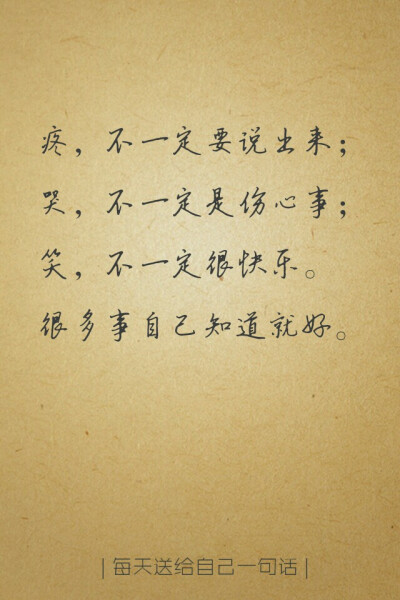 疼，不一定要说出来；
哭，不一定是伤心事；
笑，不一定很快乐。
很多事自己知道就好。
|每天送给自己一句话|